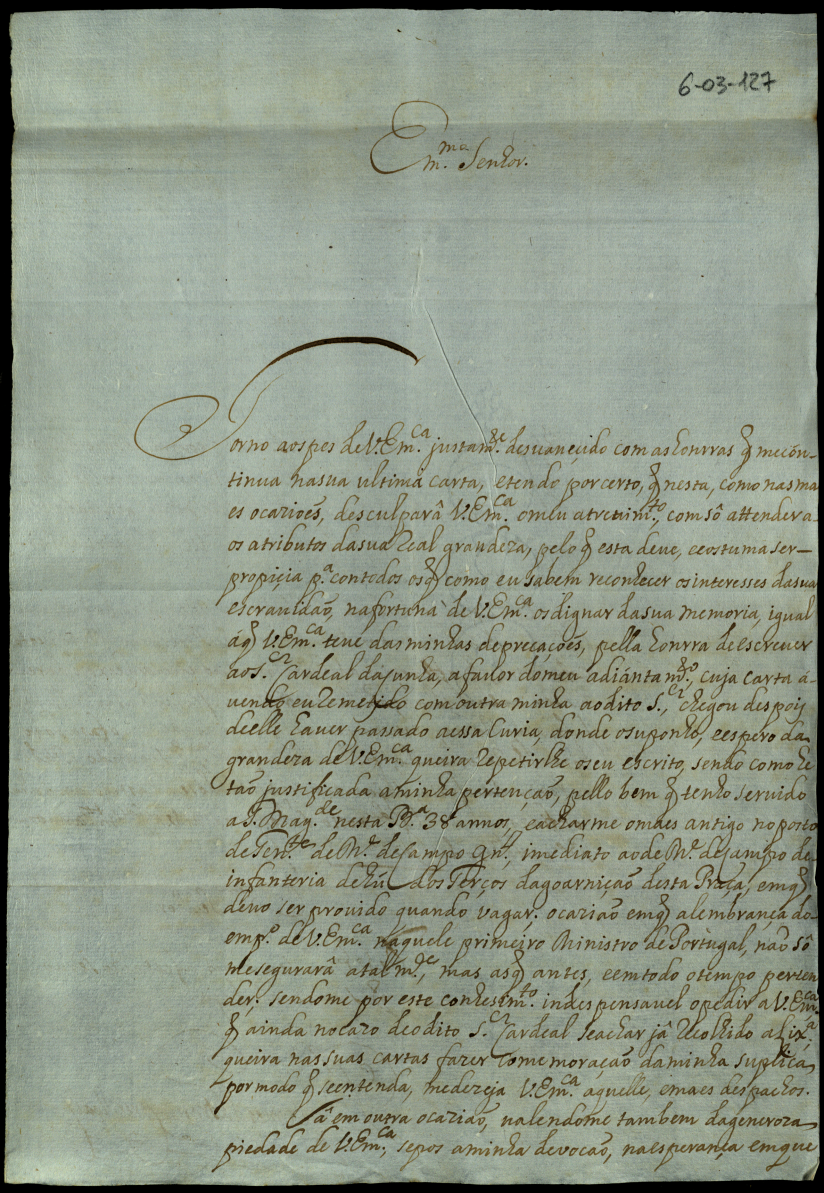 6-03-127
Em.mo Senhor.
Torno aos pes de V. Em.ca justam.te desuaneçido com as honrras q̃ me cõn-
tinua na sua ultima carta, e tendo por certo, q̃ nesta, como nas ma
es ocazioẽs, desculparâ V. Em.ca o meu atreuim.to, com sô attender a-
os atributos da sua Real grandeza, pelo q̃ esta deve, e costuma ser-
propiçia p.a con todos os q̃ como eu sabem reconhecer os interesses da sua
escrauidaõ, na fortuna de V. Em.ca os dignar da sua memoria, igual
á q̃ V. Em.ca teve das minhas depreçações, pella honrra de escreuer
ao S.r Cardeal da Cunha, a fauor do meu adiántam.to, cuja carta á-
vendo eu Remetido com outra minha ao dito S.r, chegou despois
de elle hauer passado a essa Curia, donde o suponho, e espero da
grandeza de V. Em.ca queira repetirlhe o seu escrito, sendo como he
taõ justificada a minha pertençaõ, pello bem q̃ tenho seruido
a S. Mag.de nesta B.a 38 annos, e acharme o maes antigo no posto
de Ten.te de M.e de Campo gn.l, imediato ao de M.e de Campo de
infanteria de hũ dos Terços da goarniçaõ desta Praça, em q̃
devo ser prouido quando vagar: ocaziaõ em q̃ a lembrança do-
emp.o de V. Em.ca naquele primeiro Ministro de Portugal, naõ sô
me segurarâ a tal m.ce, mas as q̃ antes, e em todo o tempo perten
der: sendome por este conhesim.to indespensauel o pedir a V. Em.ca
q̃ ainda no cazo de o dito S.r Cardeal se achar jâ recolhido a Lix.a
queira nas suas cartas fazer comemoraçaõ da minha suplica
por modo q̃ se entenda, me dezeja V. Em.ca aquelle, e maes despachos.
Jâ em outra ocaziaõ, ualendome tambem da generoza
piedade de V. Em.ca, se pos a minha devocaõ, na esperança em que